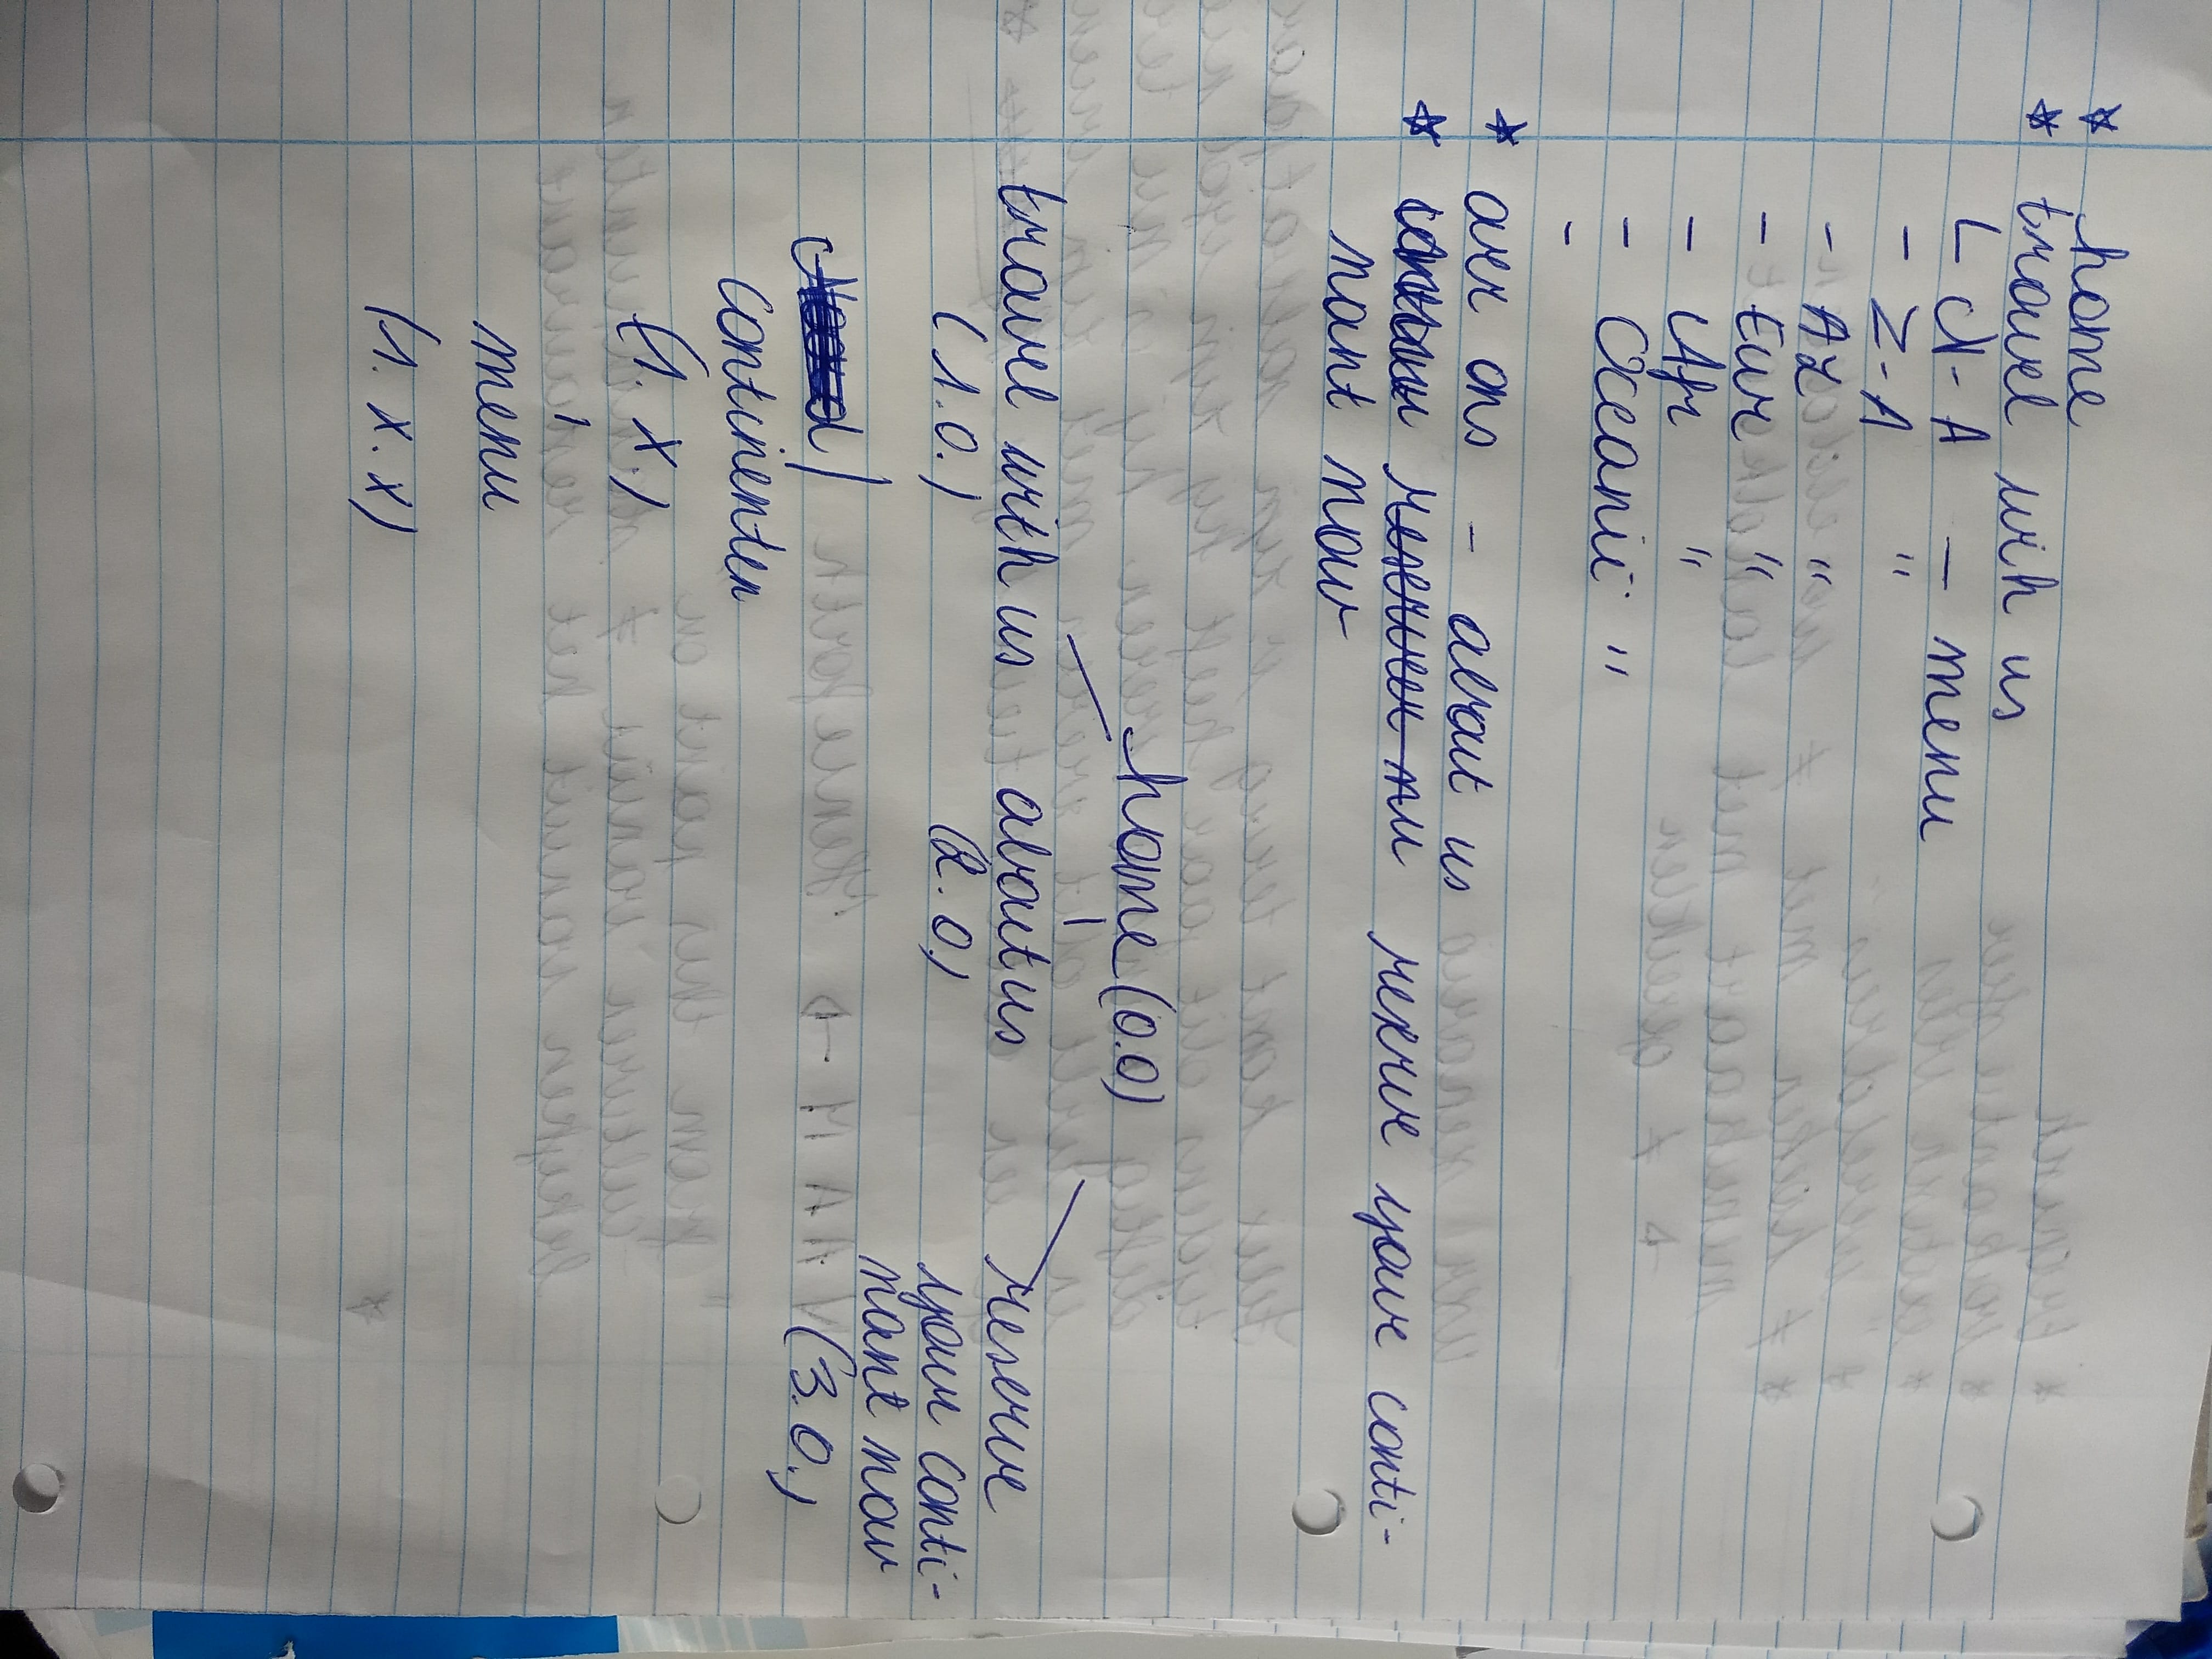 * home
* travel wih us
L N-A - menu
- Z-A "
- AZ "
- Eur "
- Afr "
- Oceanië "
-
* over ons - about us
* reserve your conti-
nant now
home (0.0)
travel with us about us reserve
(1.0.) (2.0.) your conti-
nant now
(3.0.)
continenten
(1.x.)
menu
(1.x.x)